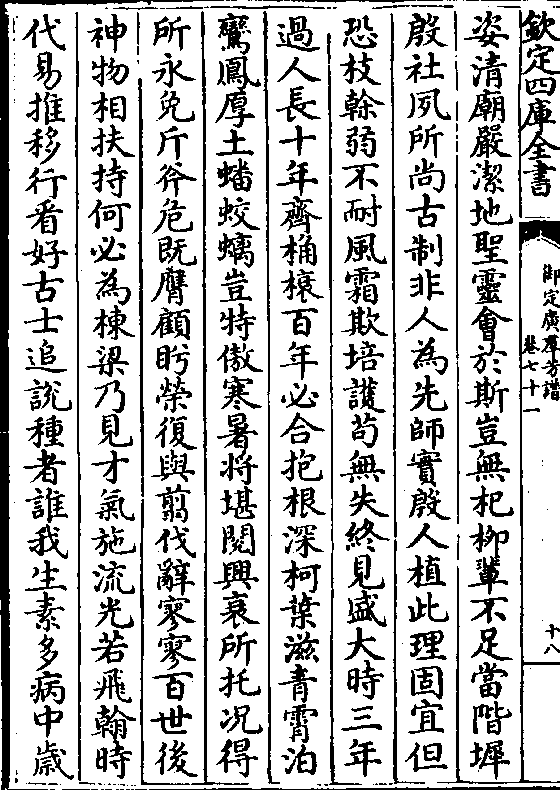 欽定四庫全書
御定廣羣芳譜
卷七十一
十八
姿清廟嚴潔地聖靈會於斯豈無杞柳輩不足當階墀
殷社夙所尚古制非人為先師實殷人植此理固宜但
恐枝榦弱不耐風霜欺培護苟無失終見盛大時三年
過人長十年齊桷榱百年必合抱根深柯葉滋青霄泊
鸞鳳厚土蟠蛟螭豈特傲寒暑将堪閱興衰所托况得
所永免斤斧危既膺顧眄榮復與翦伐辭寥寥百世後
神物相扶持何必為棟梁乃見才氣施流光若飛翰時
代易推移行看好古士追說種者誰我生素多病中歲